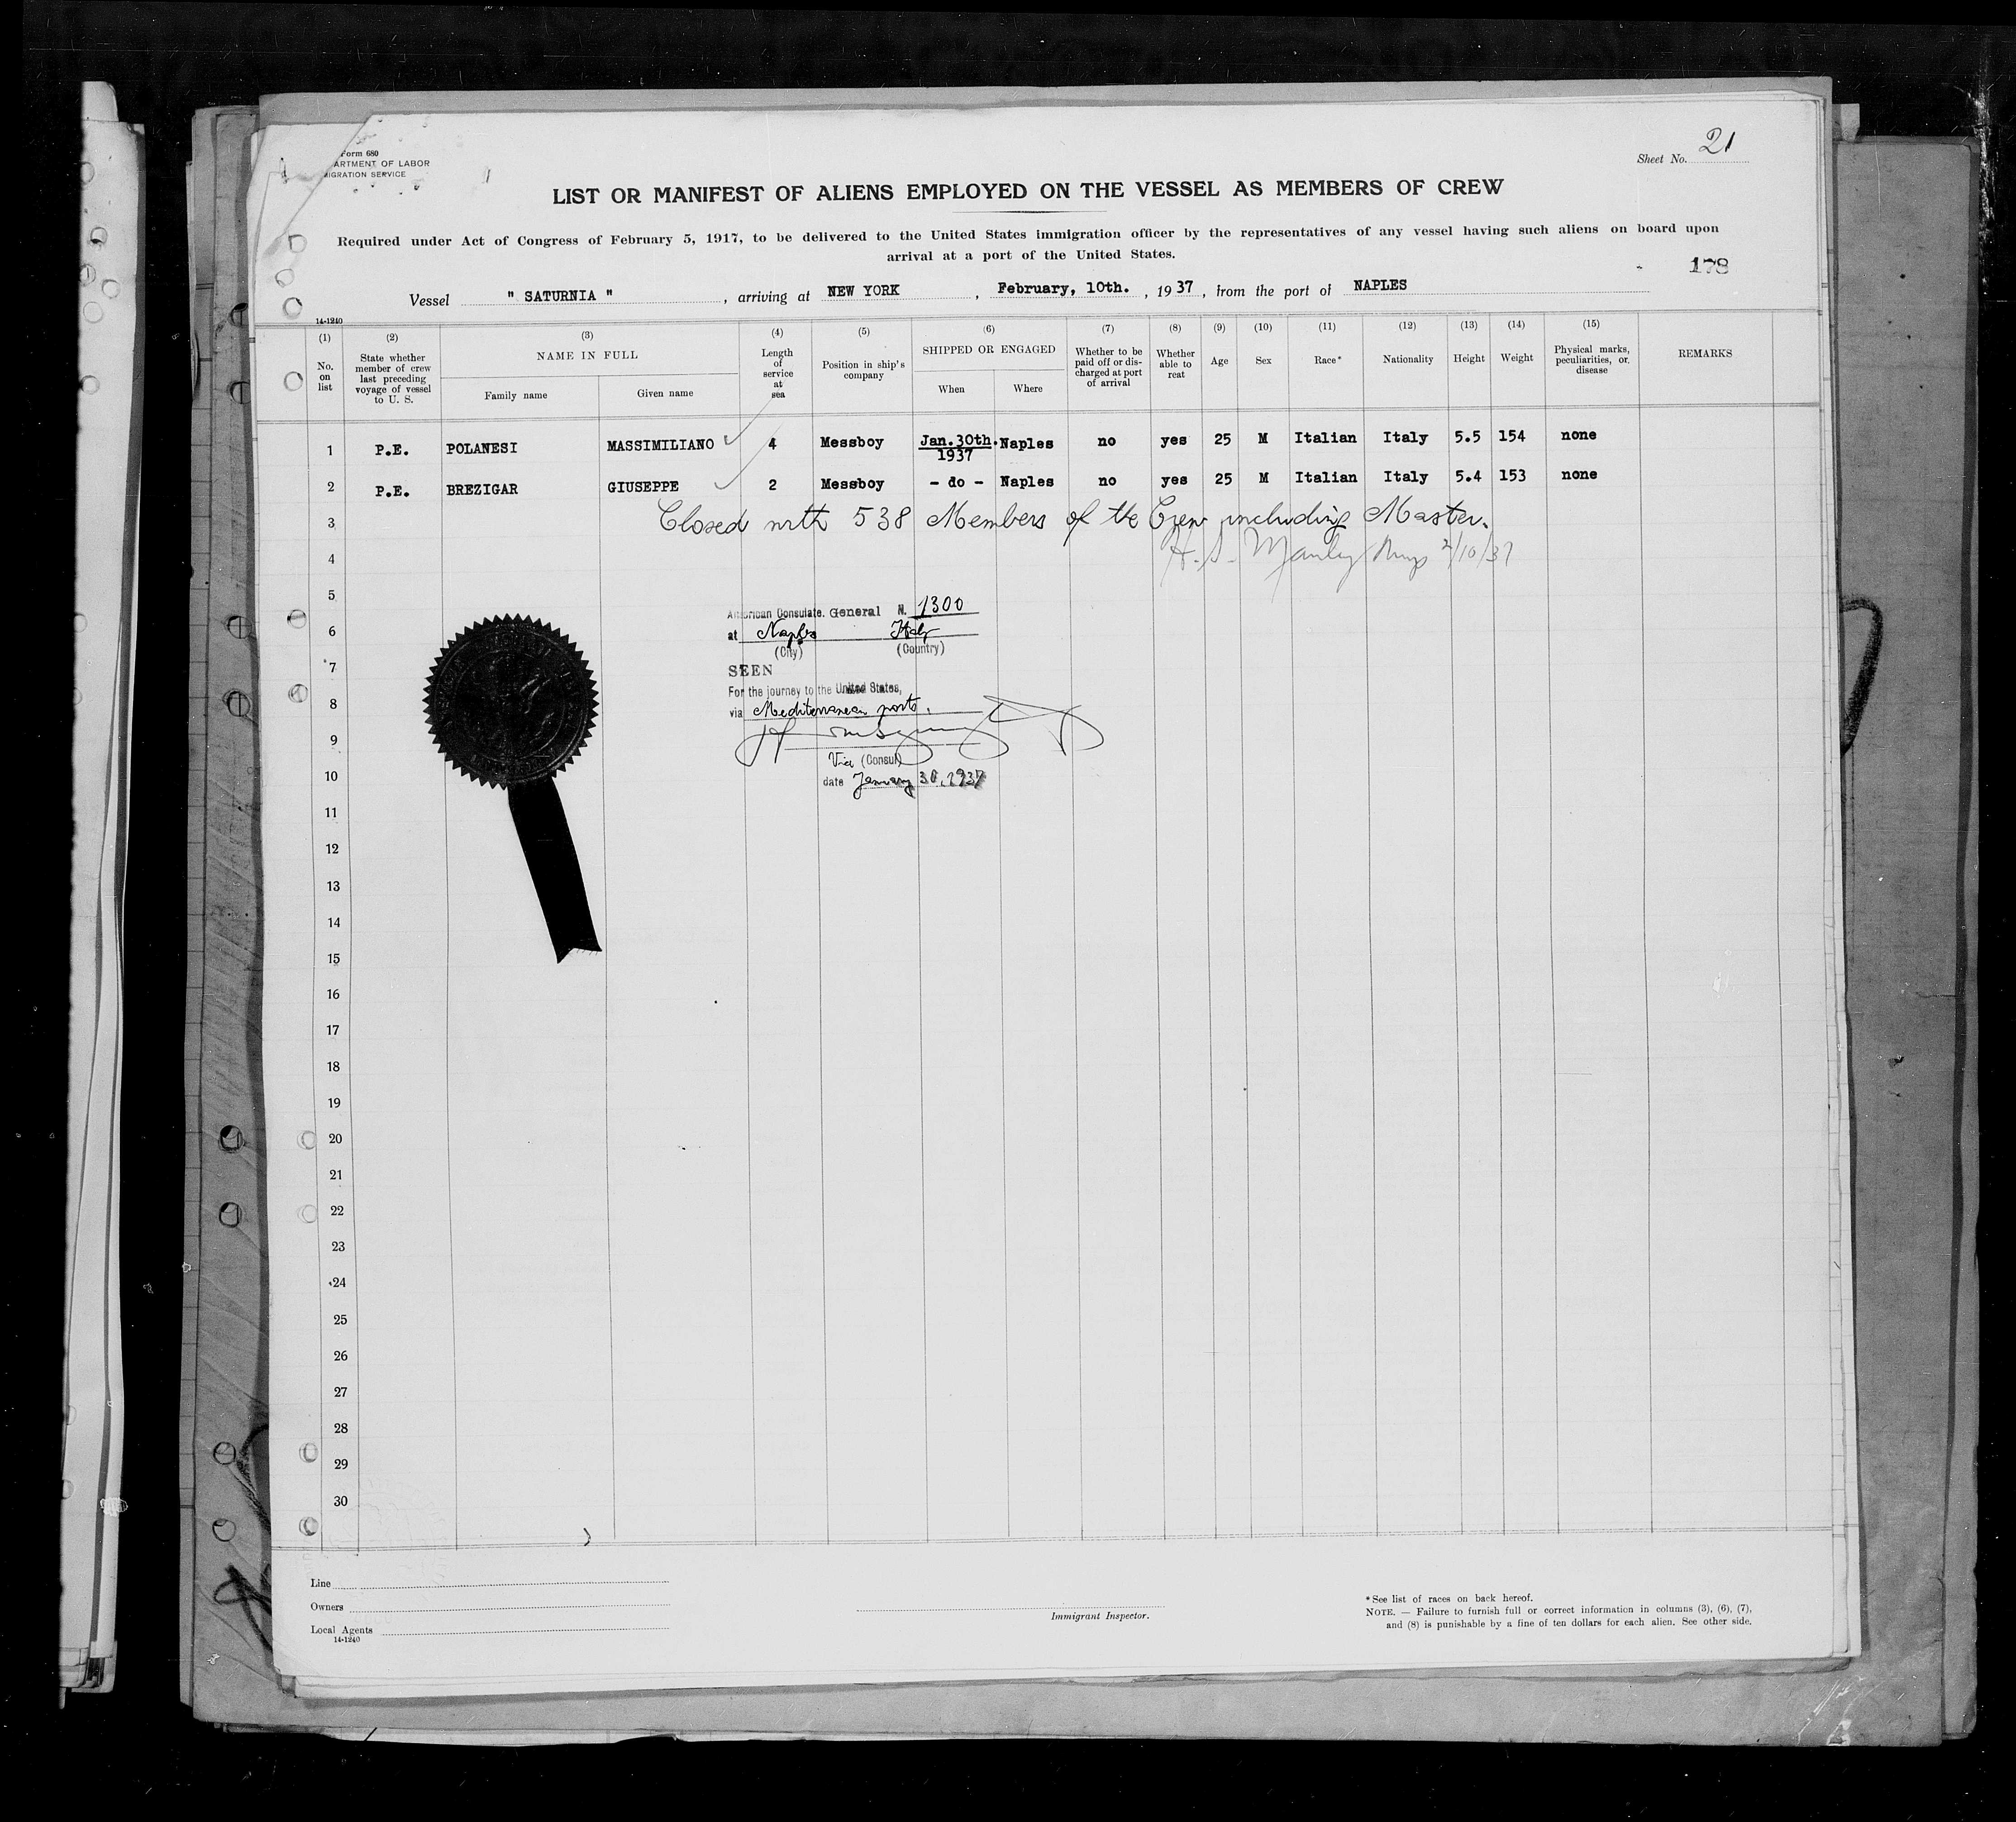 Form 680
ARTMENT OF LABOR
IGRATION SERVICE
Sheet No. 21
LIST OR MANIFEST OF ALIENS EMPLOYED ON THE VESSEL AS MEMBERS OF CREW
Required under Act of Congress of February 5, 1917, to be delivered to the United States immigration officer by the representatives of any vessel having such aliens on board upon
arrival at a port of the United States.
178
Vessel " SATURNIA " , arriving at NEW YORK , February, 10th. , 19 37 , from the port of NAPLES
14-1240
(1) (2) (3) (4) (5) (6) (7) (8) (9) (10) (11) (12) (13) (14) (15)
No. on list
State whether member of crew last preceding voyage of vessel to U. S.
NAME IN FULL
Family name
Given name
Length of service at sea
Position in ship's company
SHIPPED OR ENGAGED
When
Where
Whether to be paid off or discharged at port of arrival
Whether able to reat
Age
Sex
Race*
Nationality
Height
Weight
Physical marks, peculiarities, or. disease
REMARKS
1 P.E. POLANESI MASSIMILIANO 4 Messboy Jan.30th. 1937 Naples no yes 25 M Italian Italy 5.5 154 none
2 P.E. BREZIGAR GIUSEPPE 2 Messboy - do - Naples no yes 25 M Italian Italy 5.4 153 none
3 Closed with 538 Members of the Crew including Master.
4 H. S. Manley 2/10/37
5
American Consulate. General N. 1300
6
at Naples Italy
(City) (Country)
7
SEEN
For the journey to the United States,
8
via Mediterranean ports.
9
Vice (Consul)
10
date January 30, 1937
11
12
13
14
15
16
17
18
19
20
21
22
23
24
25
26
27
28
29
30
Line
Owners
Local Agents
14-1240
Immigrant Inspector.
*See list of races on back hereof.
NOTE. — Failure to furnish full or correct information in columns (3), (6), (7),
and (8) is punishable by a fine of ten dollars for each alien. See other side.